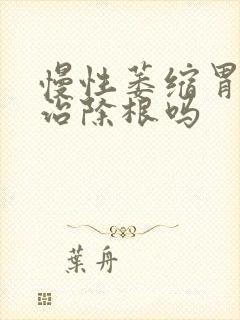 慢性萎缩胃
治除根吗
葉舟